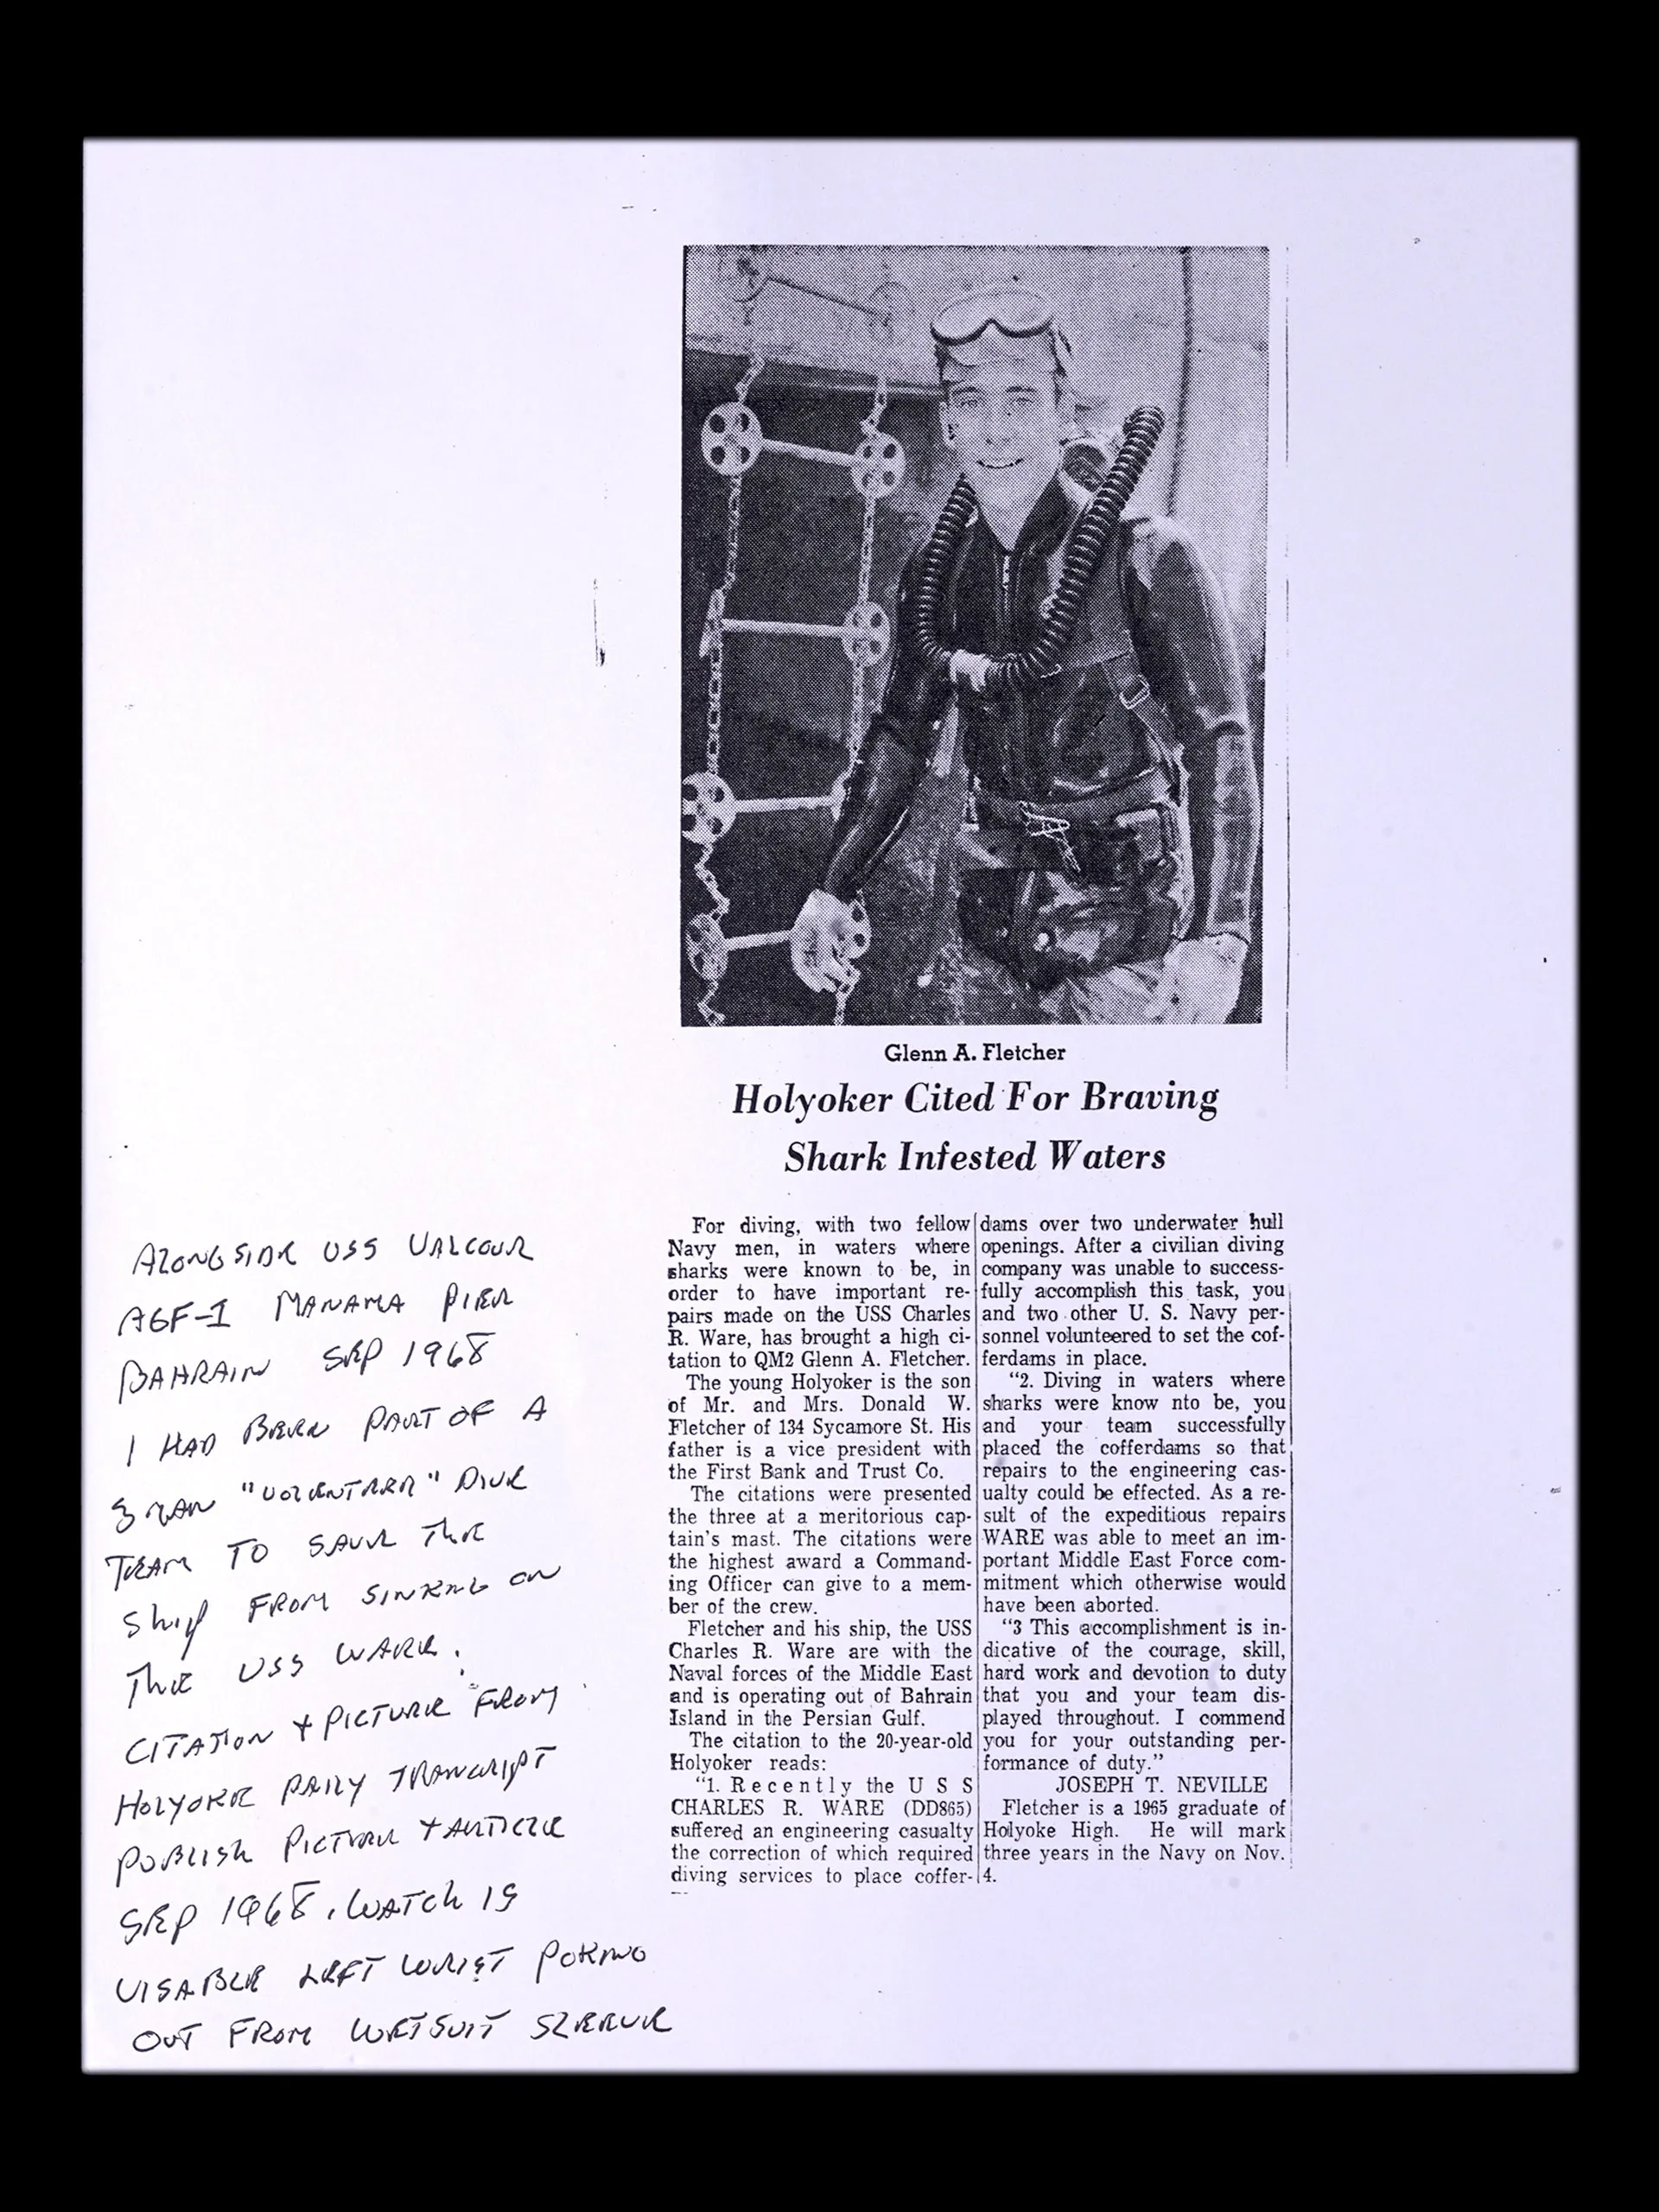 Glenn A. Fletcher
Holyoker Cited For Braving
Shark Infested Waters
For diving, with two fellow
Navy men, in waters where
sharks were known to be, in
order to have important re-
pairs made on the USS Charles
R. Ware, has brought a high ci-
tation to QM2 Glenn A. Fletcher.
The young Holyoker is the son
of Mr. and Mrs. Donald W.
Fletcher of 134 Sycamore St. His
father is a vice president with
the First Bank and Trust Co.
The citations were presented
the three at a meritorious cap-
tain's mast. The citations were
the highest award a Command-
ing Officer can give to a mem-
ber of the crew.
Fletcher and his ship, the USS
Charles R. Ware are with the
Naval forces of the Middle East
and is operating out of Bahrain
Island in the Persian Gulf.
The citation to the 20-year-old
Holyoker reads:
"1. Recently the U S S
CHARLES R. WARE (DD865)
suffered an engineering casualty
the correction of which required
diving services to place coffer-
dams over two underwater hull
openings. After a civilian diving
company was unable to success-
fully accomplish this task, you
and two other U. S. Navy per-
sonnel volunteered to set the cof-
ferdams in place.
"2. Diving in waters where
sharks were know nto be, you
and your team successfully
placed the cofferdams so that
repairs to the engineering cas-
ualty could be effected. As a re-
sult of the expeditious repairs
WARE was able to meet an im-
portant Middle East Force com-
mitment which otherwise would
have been aborted.
"3 This accomplishment is in-
dicative of the courage, skill,
hard work and devotion to duty
that you and your team dis-
played throughout. I commend
you for your outstanding per-
formance of duty."
JOSEPH T. NEVILLE
Fletcher is a 1965 graduate of
Holyoke High. He will mark
three years in the Navy on Nov.
4.
ALONGSIDE USS VALCOUR
AGF-1 MANAMA PIER
BAHRAIN SEP 1968
I HAD BEEN PART OF A
3 MAN "VOLENTEER" DIVE
TEAM TO SAVE THE
SHIP FROM SINKING ON
THE USS WARE.
CITATION + PICTURE FROM
HOLYOKE DAILY TRANCRIPT
PUBLISH PICTURE + ARTICLE
SEP 1968. WATCH IS
VISABLE LEFT WRIST POKING
OUT FROM WETSUIT SLEEVE